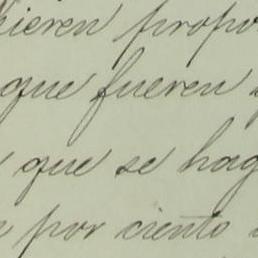 hieren propo
que fueren
que se hag
por ciento